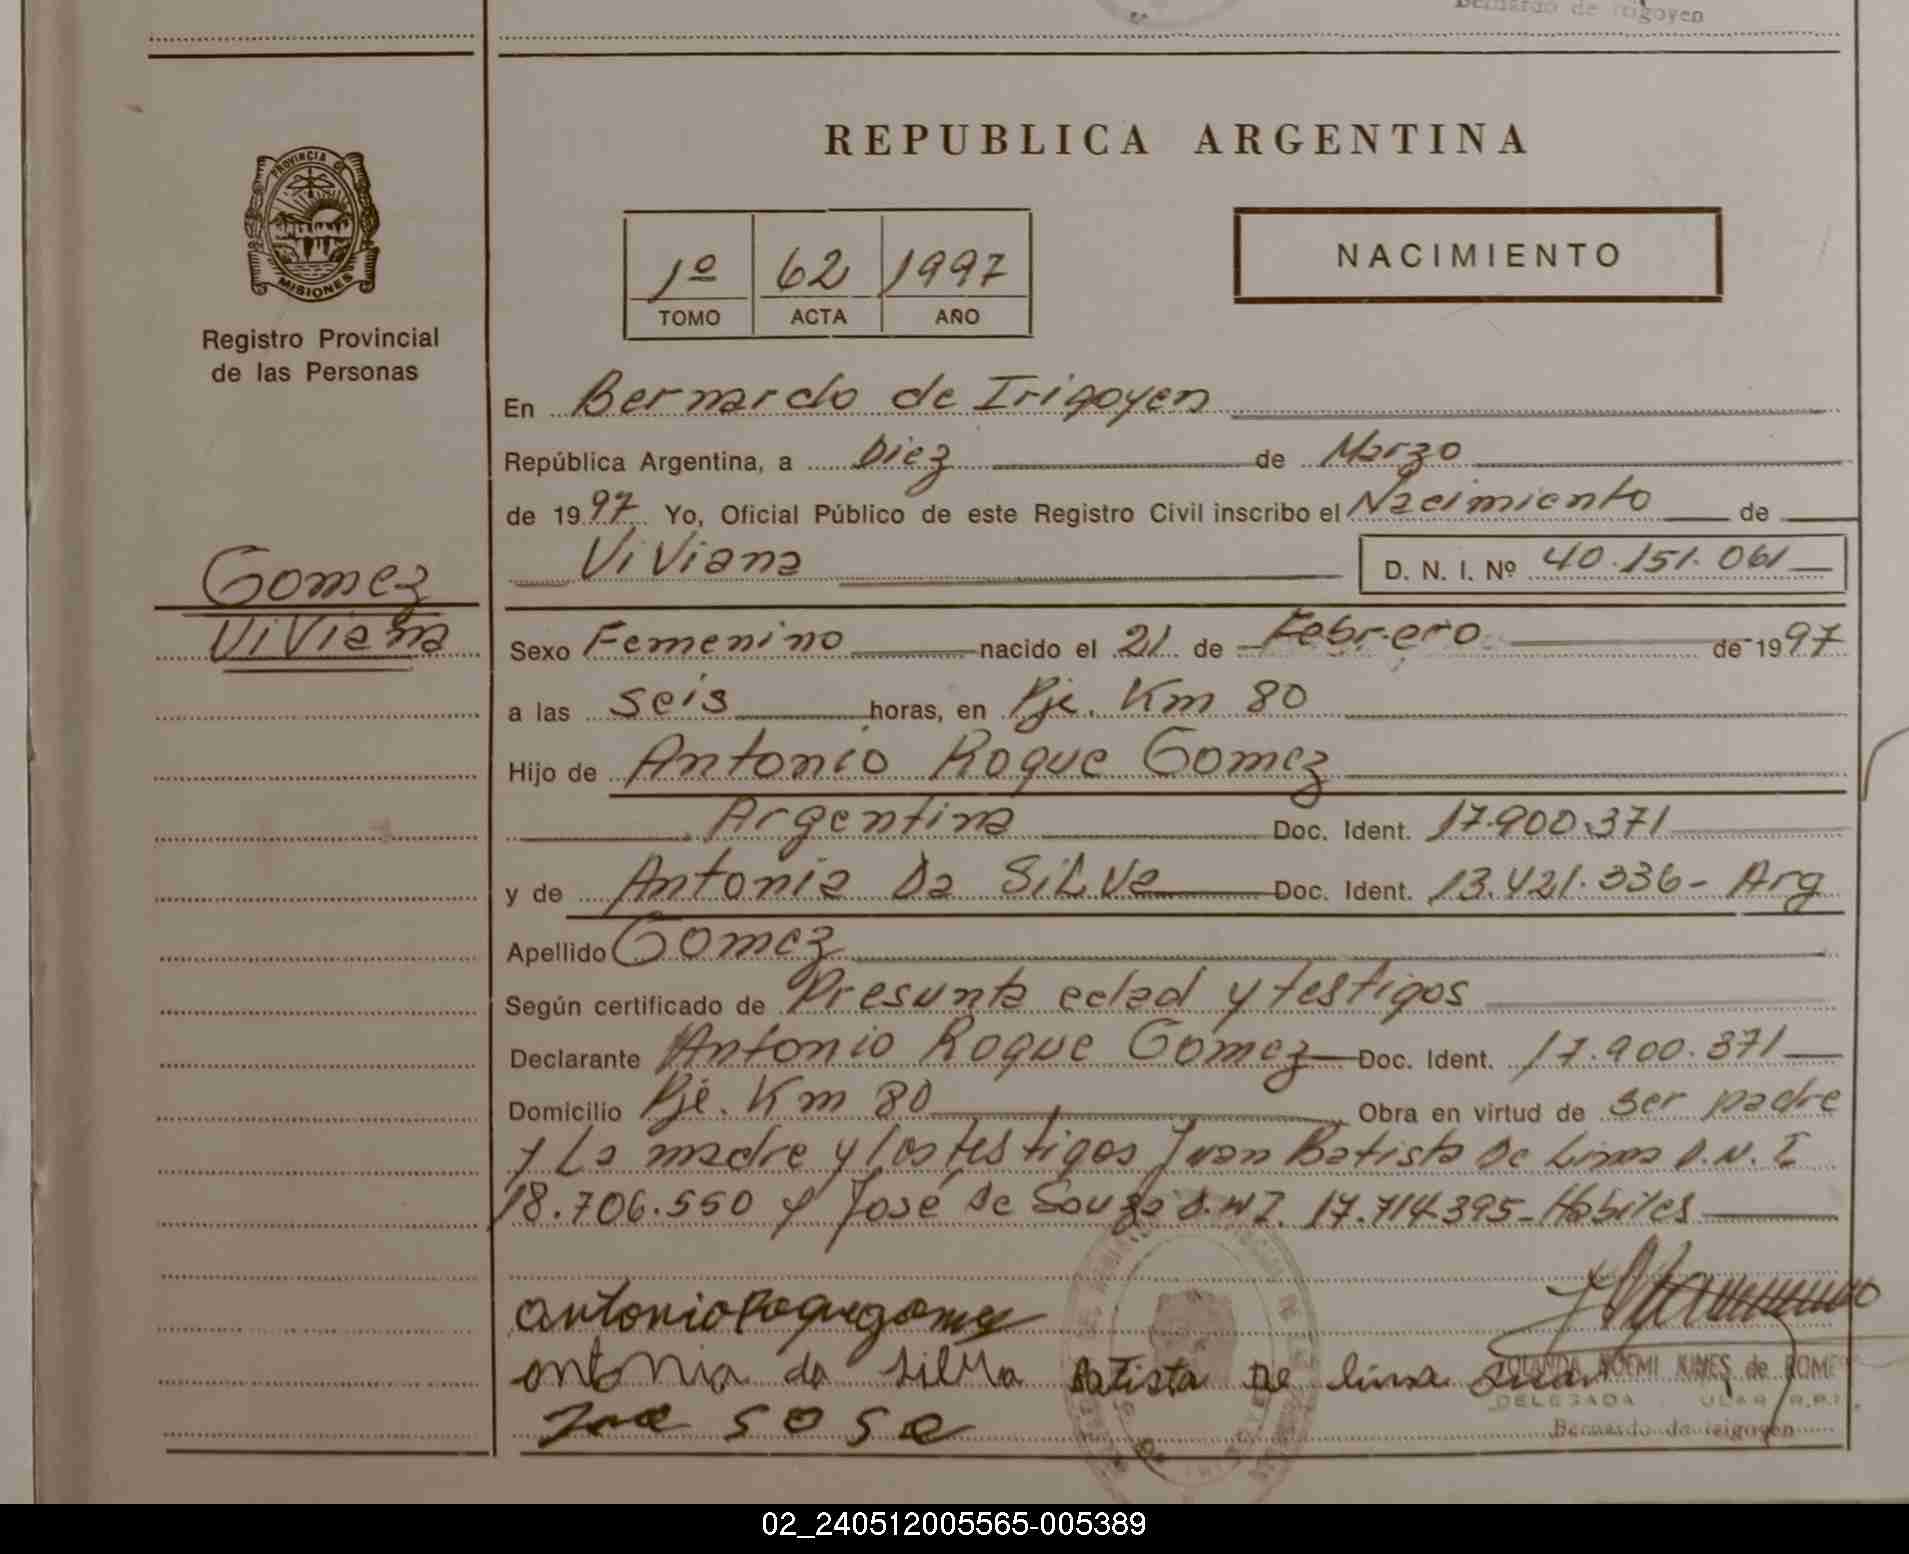 Bernardo de Irigoyen
REPUBLICA ARGENTINA
PROVINCIA DE
MISIONES
Registro Provincial
de las Personas
1º 62 1997
TOMO ACTA AÑO
NACIMIENTO
En Bernardo de Irigoyen
República Argentina, a Diez de Marzo
de 1997 Yo, Oficial Público de este Registro Civil inscribo el Nacimiento de
Viviana D. N. I. Nº 40.151.061
Gomez
Viviana
Sexo Femenino nacido el 21 de Febrero de 1997
a las seis horas, en Pje. Km 80
Hijo de Antonio Roque Gomez
Argentina Doc. Ident. 17.900.371
y de Antonia Da Silva Doc. Ident. 13.421.336- Arg
Apellido Gomez
Según certificado de Presunta edad y testigos
Declarante Antonio Roque Gomez Doc. Ident. 17.900.371
Domicilio Pje. Km 80 Obra en virtud de ser padre
y La madre y los testigos Juan Batista De Lima D.N.I
18.706.550 y José De Souza D.N.I. 17.714.395- Habiles
antonio Roque gomez
antonia da silva Batista De lima Juan
NOEMI de ROME
DELEGADA R.P.
Bernardo de Irigoyen
02_240512005565-005389